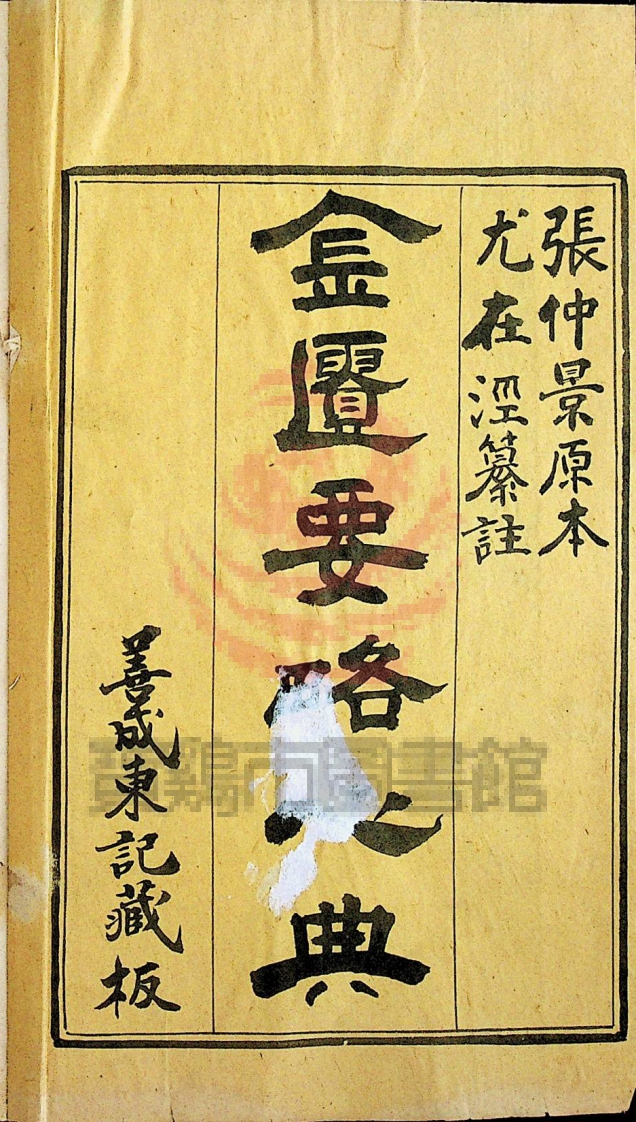 張仲景原本
尤在涇纂註
金匱要略心典
善成東記藏板
寶鷄市圖書館